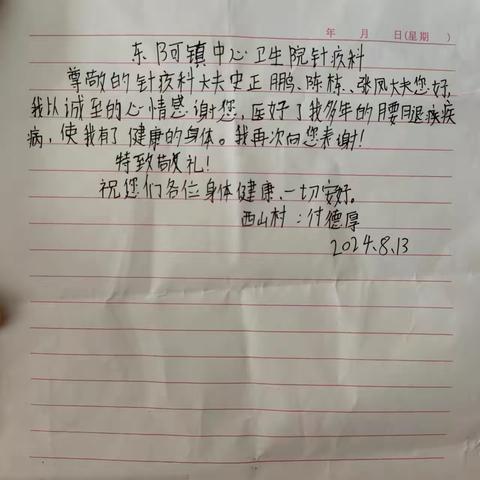 年 月 日(星期 )
东阿镇中心卫生院针疚科
尊敬的针疚科大夫史正鹏、陈栋、张凤大夫您好,
我以诚至的心情感谢您,医好了我多年的腰腿疾
病,使我有了健康的身体。我再次向您表谢!
特致敬礼!
祝您们各位身体健康、一切安好。
西山村:付德厚
2024.8.13